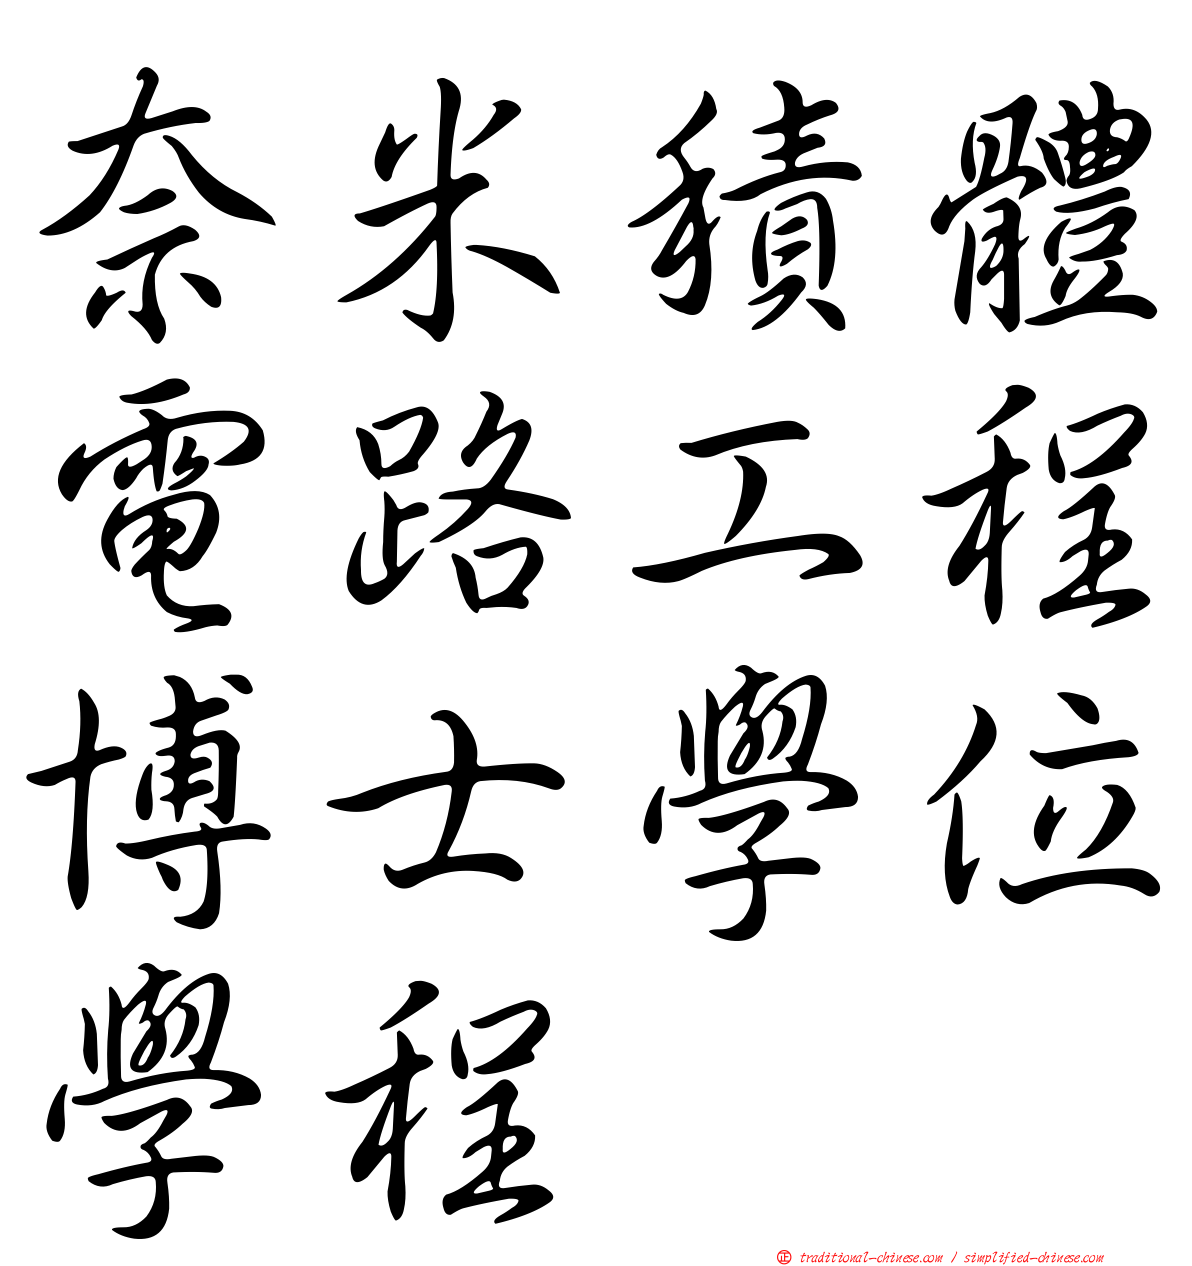 奈米積體
電路工程
博士學位
學程
正 traditional-chinese.com / simplified-chinese.com